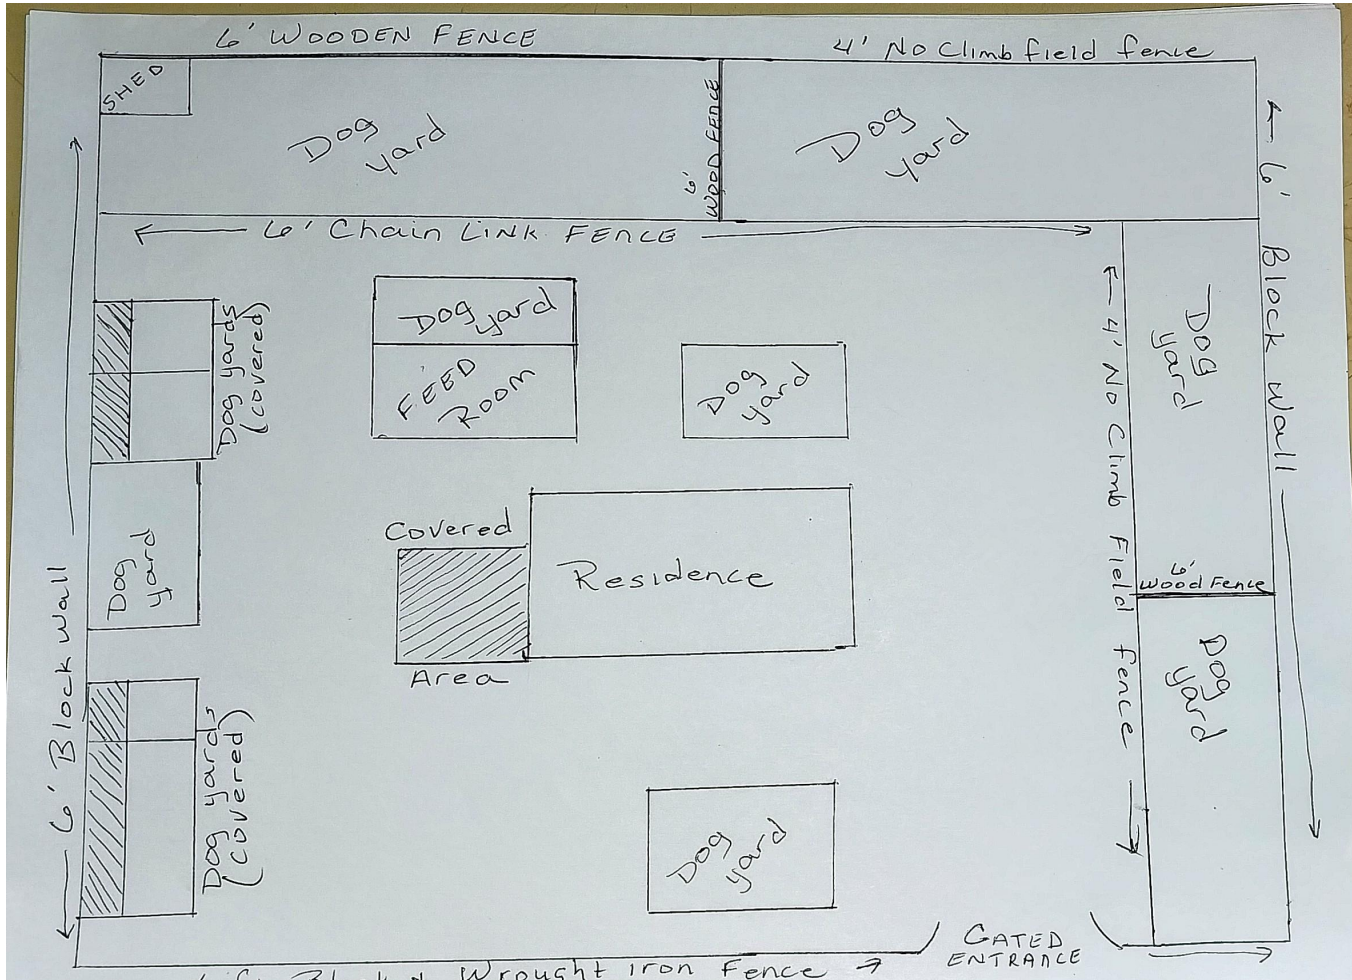 6' WOODEN FENCE
4' No Climb field fence
SHED
Dog
yard
6'
WOOD FENCE
Dog
yard
6' Block Wall
6' Chain Link FENCE
Dog yards
(covered)
Dog yard
FEED
ROOM
Dog
yard
4' No Climb Field fence
Dog
yard
Dog
yard
6' Block Wall
Covered
Area
Residence
6'
Wood Fence
Dog
yard
Dog yards
(covered)
Dog
yard
GATED
ENTRANCE
Wrought iron Fence